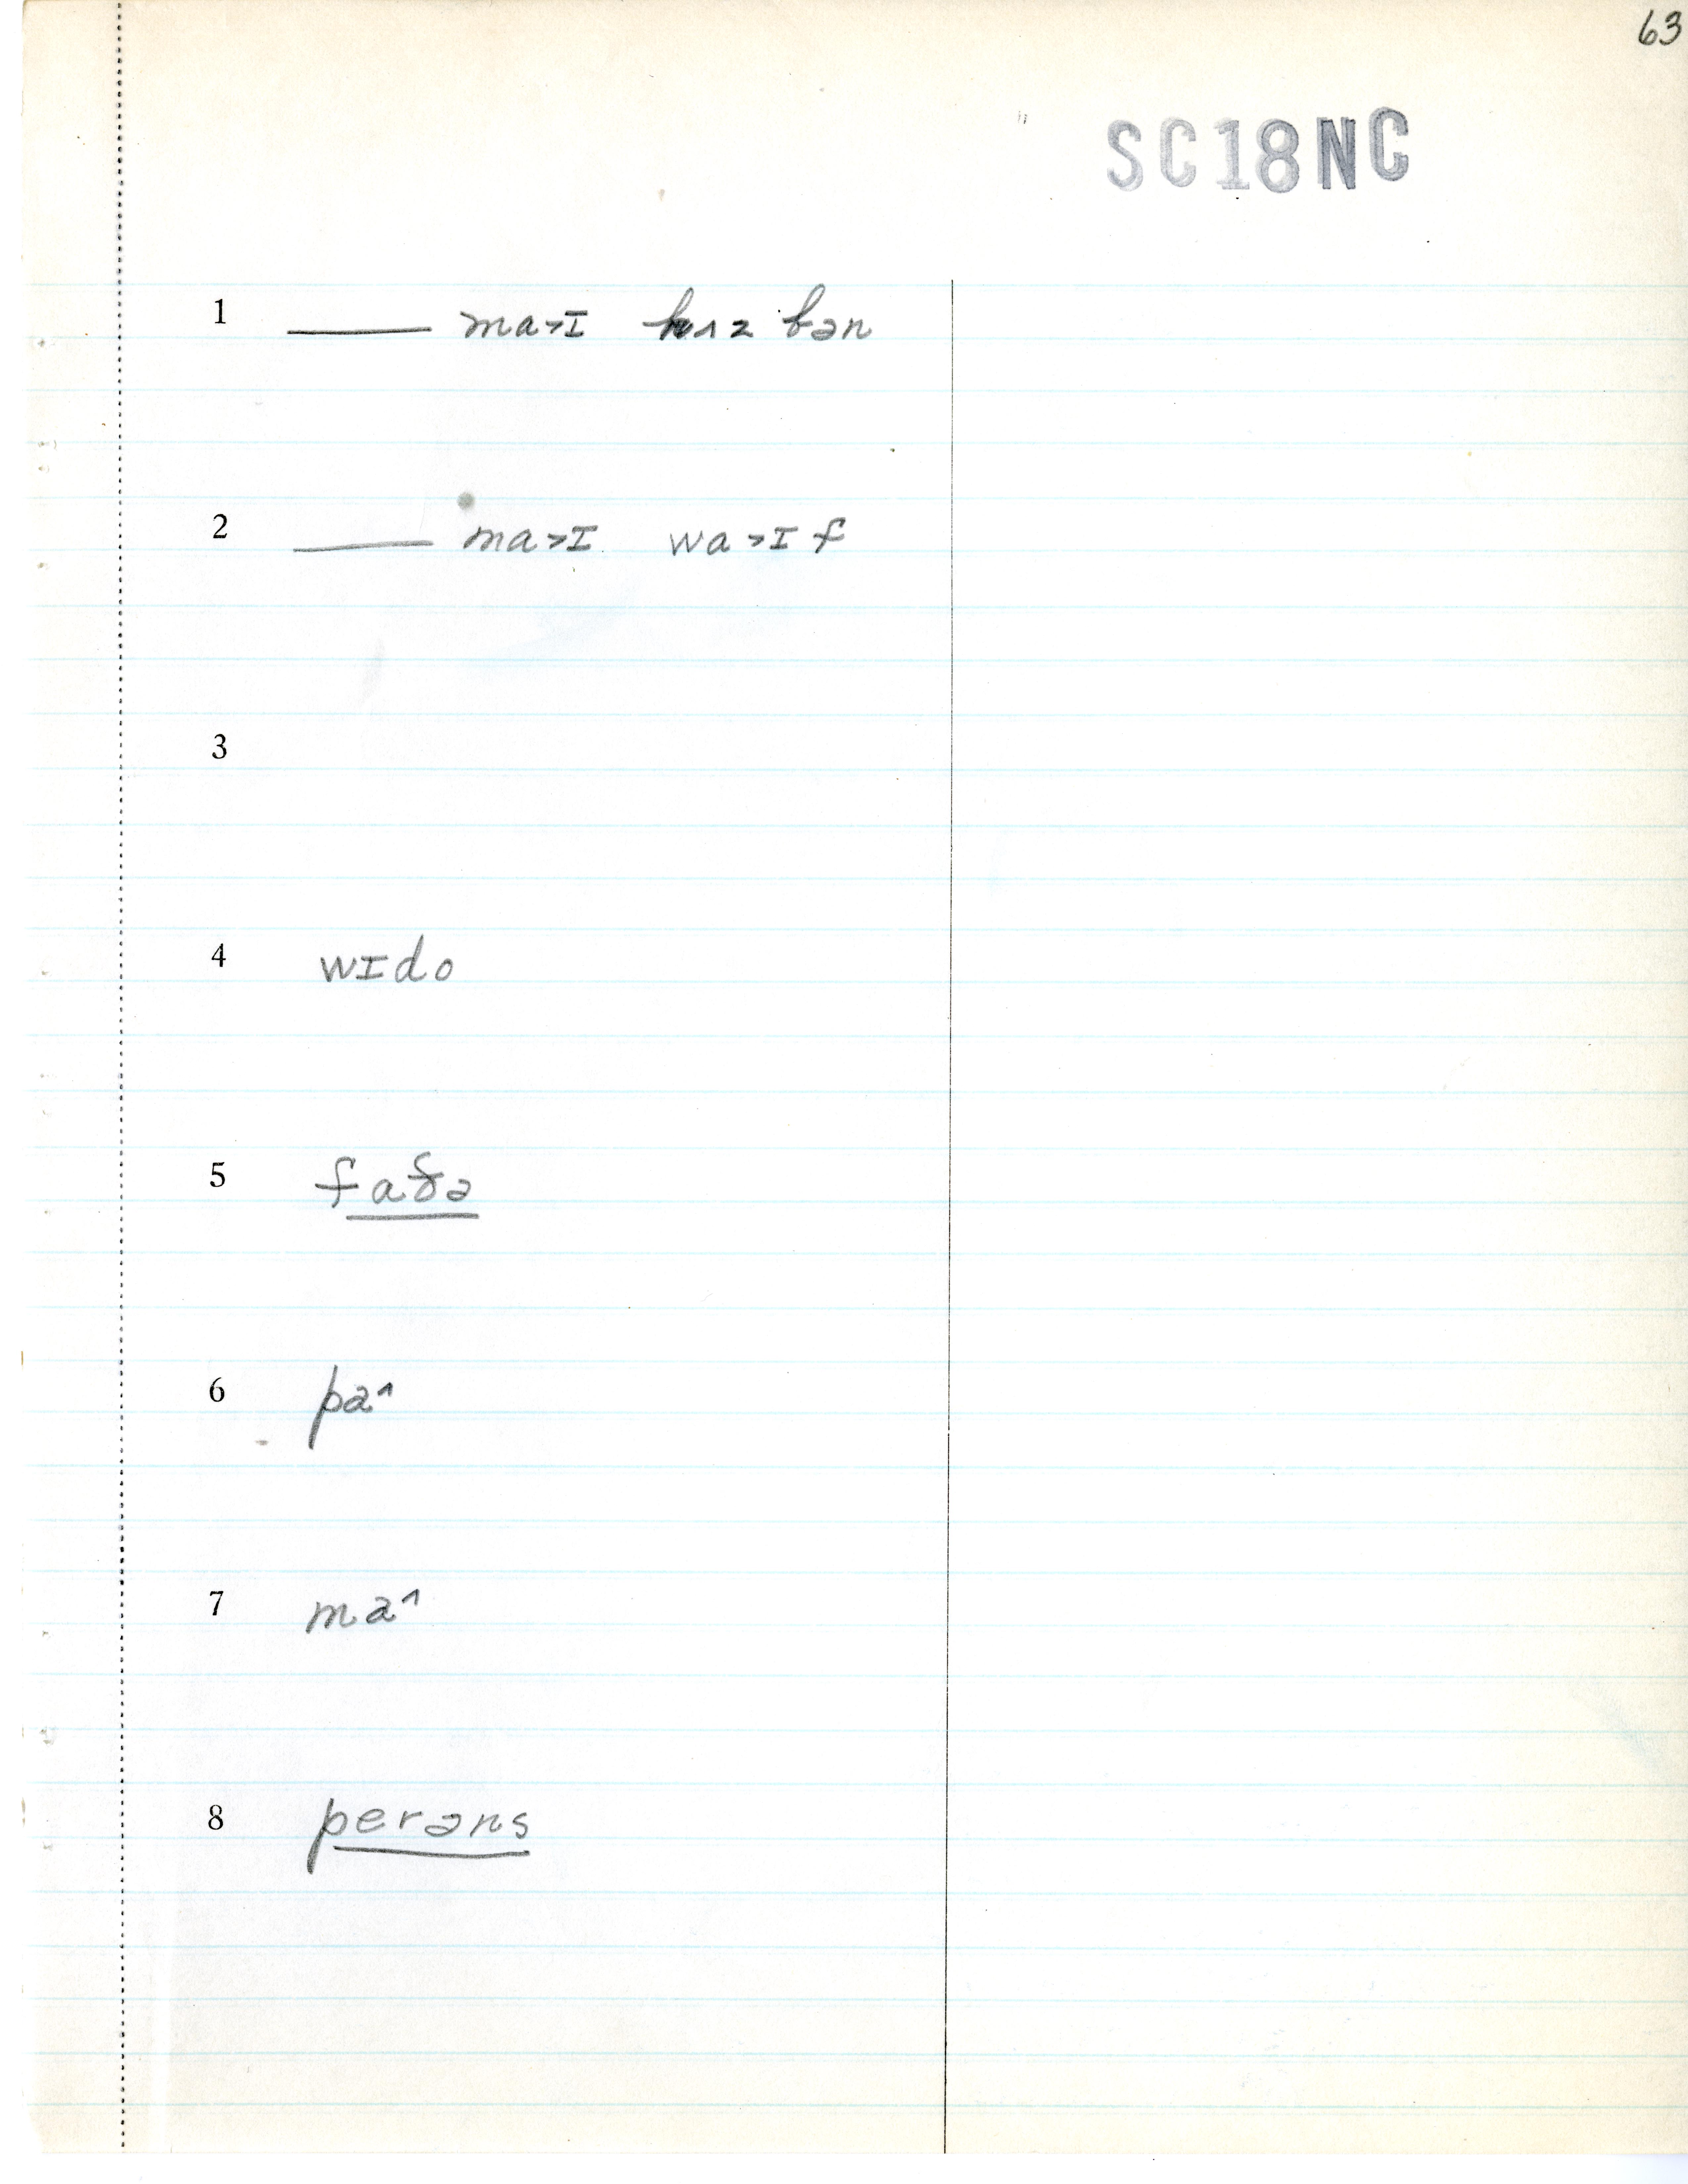 63
SC18NC
1 ____ ma˃ɪ hʌzbən
2 ____ ma˃ɪ wa˃ɪf
3
4 wɪdo
5 faðə
6 pa^
7 ma^
8 perəns